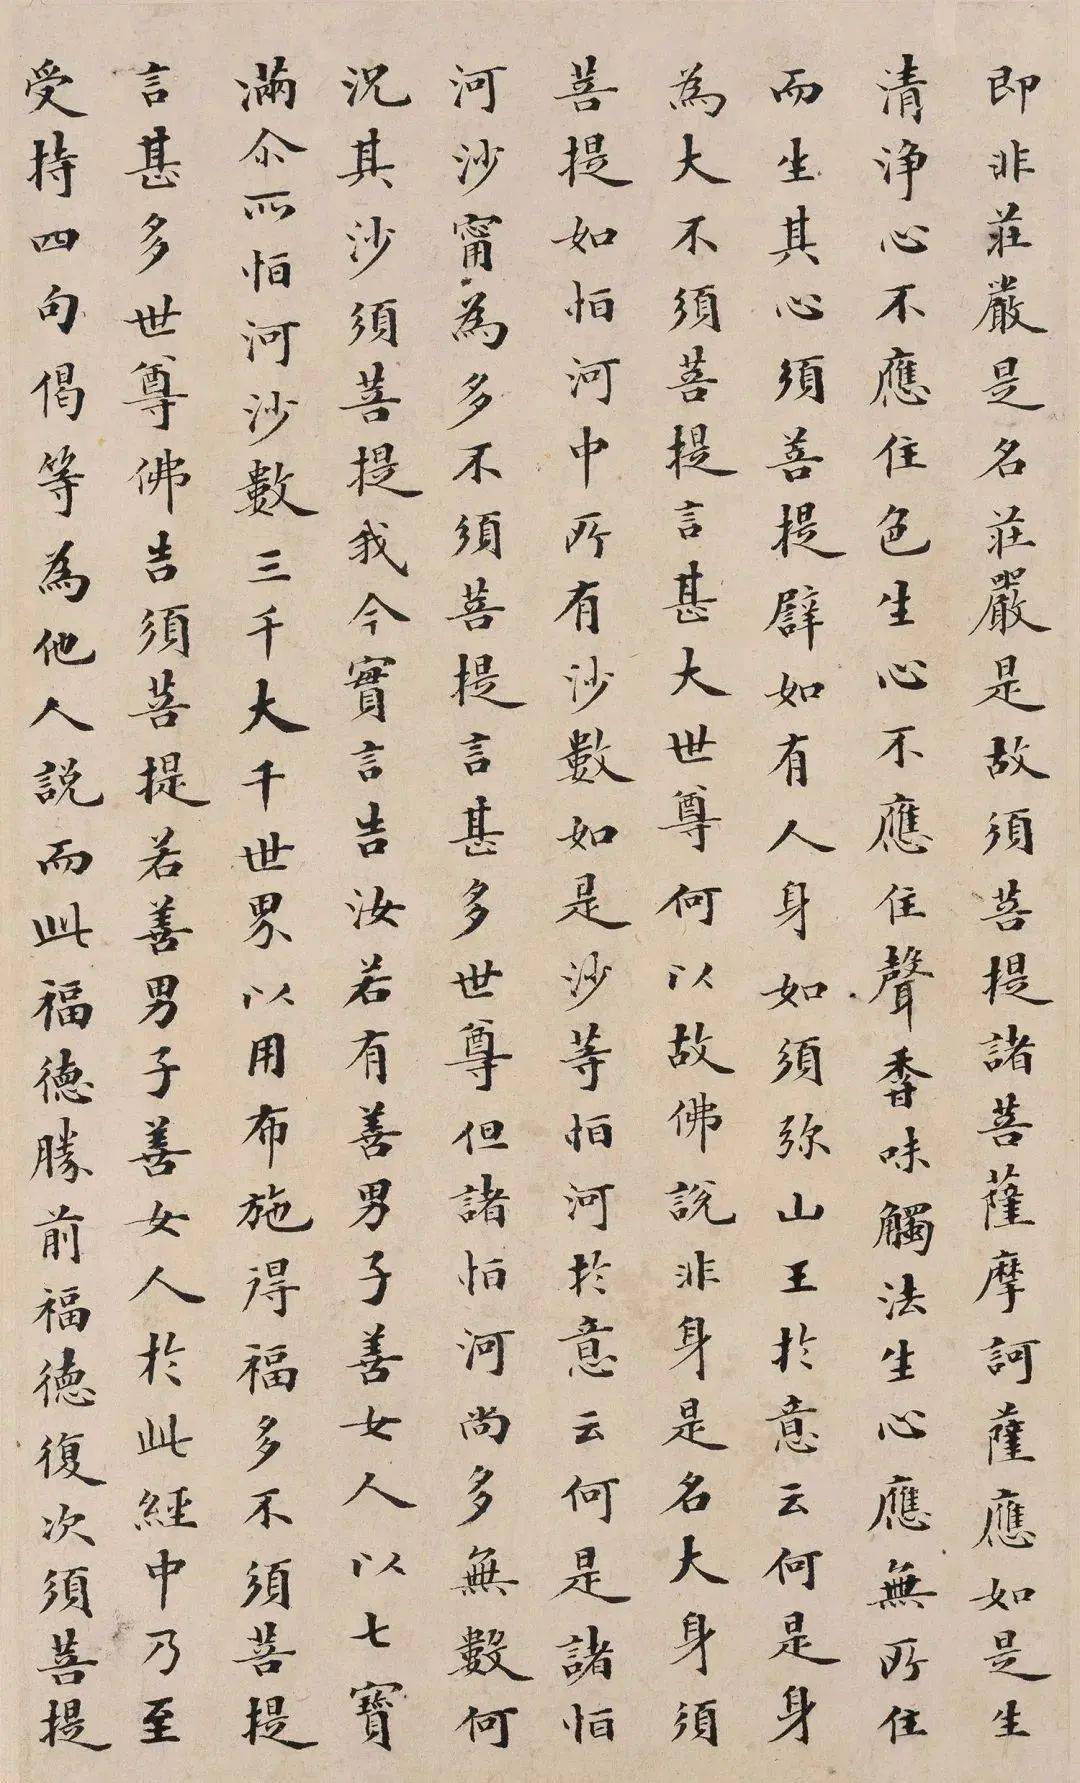 即非莊嚴是名莊嚴是故須菩提諸菩薩摩訶薩應如是生
清淨心不應住色生心不應住聲香味觸法生心應無所住
而生其心須菩提譬如有人身如須彌山王於意云何是身
為大不須菩提言甚大世尊何以故佛說非身是名大身須
菩提如恒河中所有沙數如是沙等恒河於意云何是諸恒
河沙甯為多不須菩提言甚多世尊但諸恒河尚多無數何
況其沙須菩提我今實言告汝若有善男子善女人以七寶
滿尒所恒河沙數三千大千世界以用布施得福多不須菩提
言甚多世尊佛告須菩提若善男子善女人於此經中乃至
受持四句偈等為他人說而此福德勝前福德復次須菩提